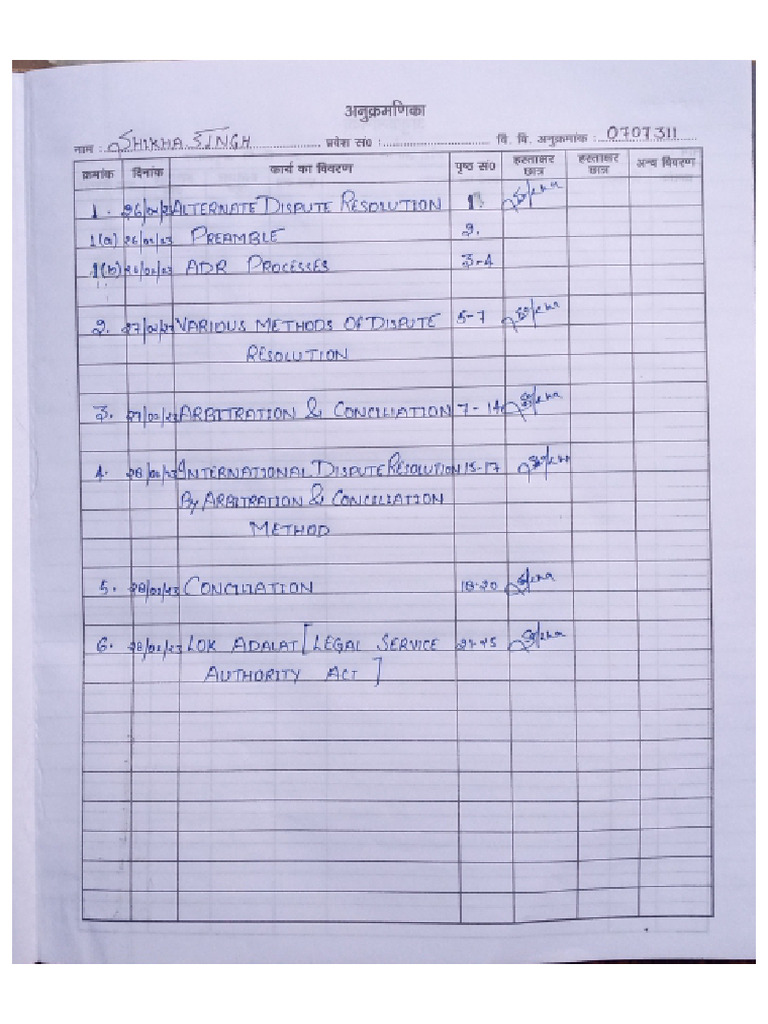 अनुक्रमणिका
नाम : SHIKHA SINGH प्रवेश सं० : वि. वि. अनुक्रमांक : 0707311
क्रमांक दिनांक कार्य का विवरण पृष्ठ सं० हस्ताक्षर छात्र हस्ताक्षर छात्र अन्य विवरण
1. ALTERNATE DISPUTE RESOLUTION 1
1(a) 26/02/23 PREAMBLE 2.
1(b) 26/02/23 ADR PROCESSES 3-4
2. VARIOUS METHODS OF DISPUTE 5-7
RESOLUTION
3. ARBITRATION & CONCILIATION 7-14
4. 28/02/23 INTERNATIONAL DISPUTE RESOLUTION 15-17
By ARBITRATION & CONCILIATION
METHOD
5. 28/02/23 CONCILIATION 18-20
6. 28/02/23 LOK ADALAT [LEGAL SERVICE
AUTHORITY ACT]